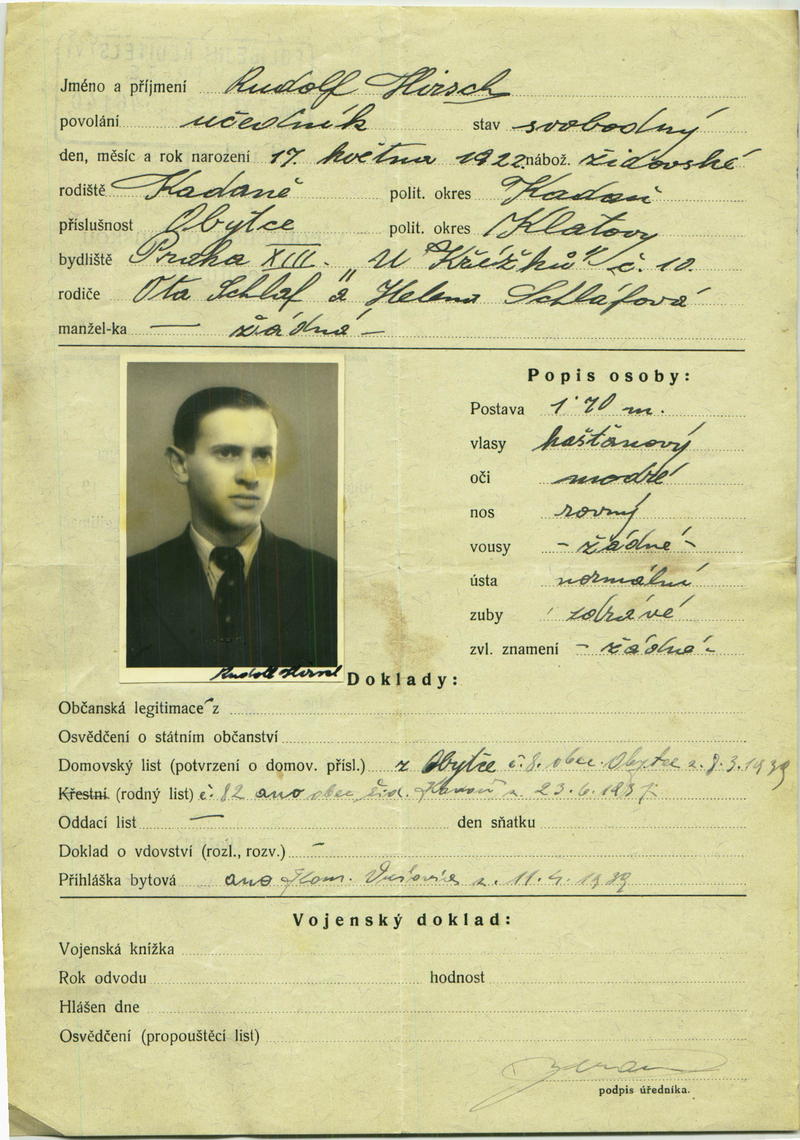 Jméno a příjmení Rudolf Hirsch
povolání učedník stav svobodný
den, měsíc a rok narození 17. května 1922 nábož. židovské
rodiště Kadaně polit. okres Kadaň
příslušnost Obytce polit. okres Klatovy
bydliště Praha XIII. - „U Křížků" č. 10.
rodiče Ota Schláf a Helena Schláfová
manžel-ka — žádná -
Popis osoby:
Postava 1'70 m.
vlasy kaštanový
oči modré
nos rovný
vousy - žádné -
ústa normální
zuby zdravé
zvl. znamení - žádná -
Rudolf Hirsch
Doklady:
Občanská legitimace z
Osvědčení o státním občanství
Domovský list (potvrzení o domov. přísl.) z Obytce č. 8. obec. Obytce z. 8. 3. 1939
Křestní (rodný list) č. 82 ano obec žid. Kadaň z 23. 6. 1937
Oddací list — den sňatku
Doklad o vdovství (rozl., rozv.) -
Přihláška bytová ano Kom. Vršovice z. 11. 4. 1939
Vojenský doklad:
Vojenská knížka
Rok odvodu hodnost
Hlášen dne
Osvědčení (propouštěcí list)
podpis úředníka.